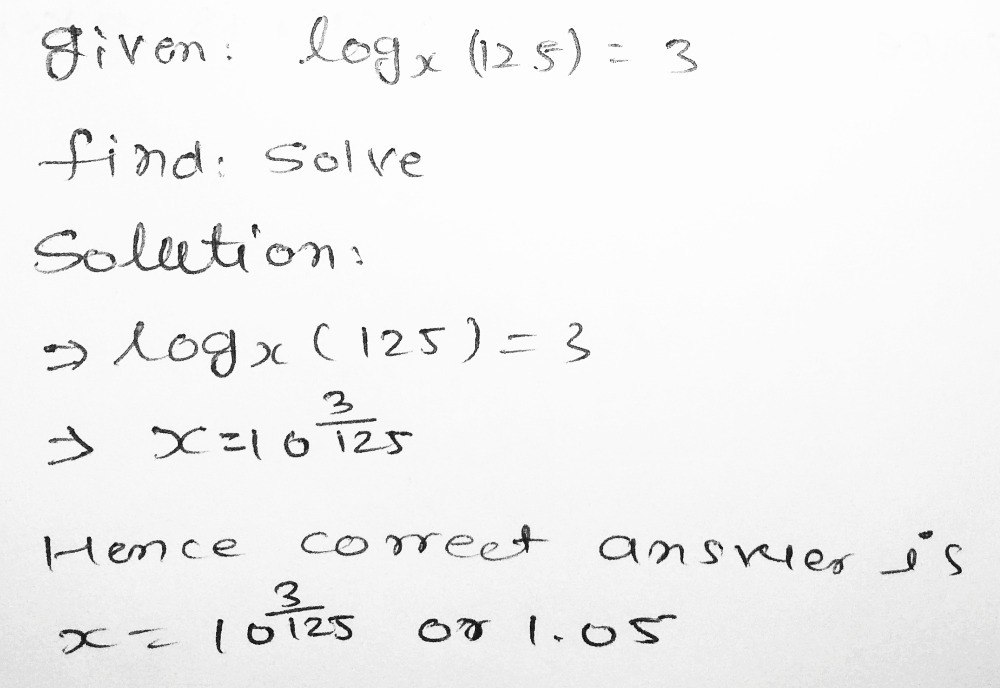 given: logₓ (125) = 3
find: Solve
Solution:
⇒ logx (125) = 3
⇒ x=10^(3/125)
Hence correct answer is
x = 10^(3/125) or 1.05